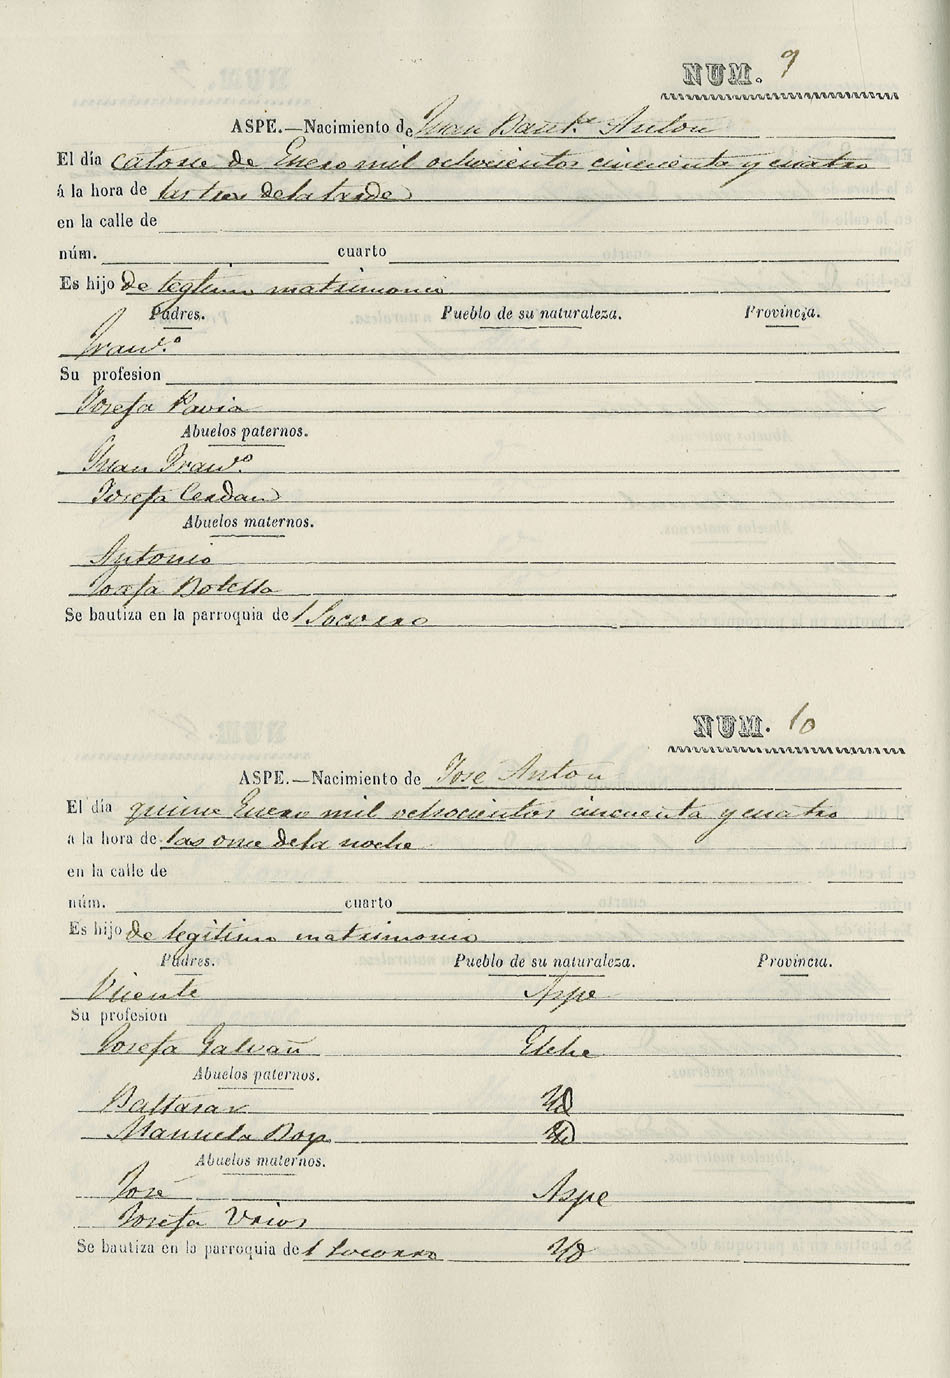 NUM. 9
ASPE.—Nacimiento de Juan Baut.ta Antoñ
El día catorse de Enero mil ochocientos cincuenta y cuatro
á la hora de las tres de la tarde
en la calle de
núm. cuarto
Es hijo de legtimo matrimonio
Padres. Pueblo de su naturaleza. Provincia.
Franco.
Su profesion
Josefa Pavia
Abuelos paternos.
Juan Franco.
Josefa Cerdan
Abuelos maternos.
Antonio
Josefa Botella
Se bautiza en la parroquia de l Socorro
NUM. 10
ASPE.—Nacimiento de José Antoñ
El día quince Enero mil ochocientos cincuenta y cuatro
a la hora de las once de la noche
en la calle de
núm. cuarto
Es hijo de legitimo matrimonio
Padres. Pueblo de su naturaleza. Provincia.
Vicente Aspe
Su profesion
Josefa Galvañ Elche
Abuelos paternos.
Baltasar Yd
Manuela Boyp Yd
Abuelos maternos.
José Aspe
Josefa Urios
Se bautiza en la parroquia de l Socorro Yd